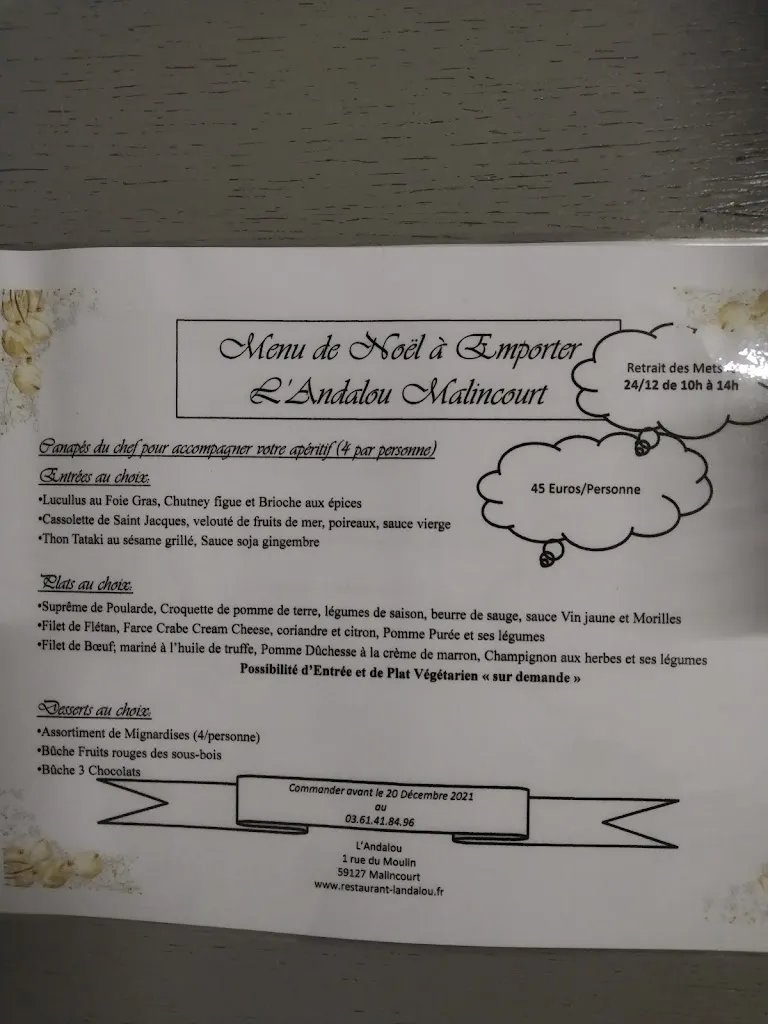 Menu de Noël à Emporter
L'Andalou Malincourt
Retrait des Mets
24/12 de 10h à 14h
45 Euros/Personne
Canapés du chef pour accompagner votre apéritif (4 par personne)
Entrées au choix:
•Lucullus au Foie Gras, Chutney figue et Brioche aux épices
•Cassolette de Saint Jacques, velouté de fruits de mer, poireaux, sauce vierge
•Thon Tataki au sésame grillé, Sauce soja gingembre
Plats au choix:
•Suprême de Poularde, Croquette de pomme de terre, légumes de saison, beurre de sauge, sauce Vin jaune et Morilles
•Filet de Flétan, Farce Crabe Cream Cheese, coriandre et citron, Pomme Purée et ses légumes
•Filet de Bœuf; mariné à l'huile de truffe, Pomme Dûchesse à la crème de marron, Champignon aux herbes et ses légumes
Possibilité d'Entrée et de Plat Végétarien « sur demande »
Desserts au choix:
•Assortiment de Mignardises (4/personne)
•Bûche Fruits rouges des sous-bois
•Bûche 3 Chocolats
Commander avant le 20 Décembre 2021
au
03.61.41.84.96
L'Andalou
1 rue du Moulin
59127 Malincourt
www.restaurant-landalou.fr